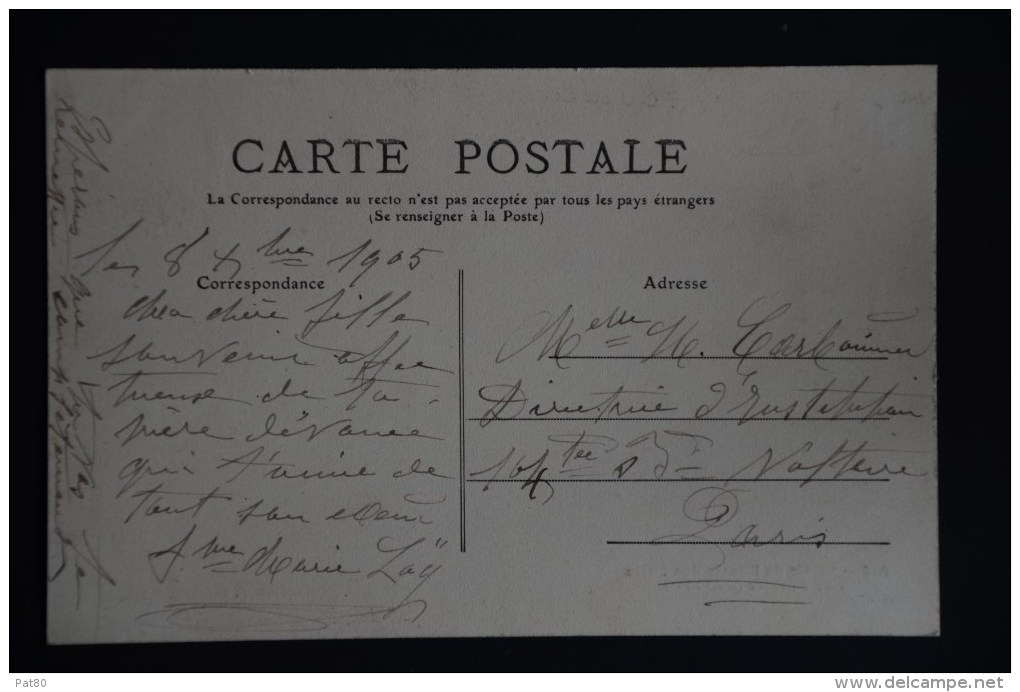 CARTE POSTALE
La Correspondance au recto n'est pas acceptée par tous les pays étrangers
(Se renseigner à la Poste)
8 Xbre 1905
Correspondance
Ma chère fille
souvenir affec
tueuse de ta
mère dévouée
qui t'aime de
tout son cœur
Marie
Adresse
Melle H. Carbonnier
Directrice d'Institution
104 Bd Voltaire
Paris
Pat80
www.delcampe.net